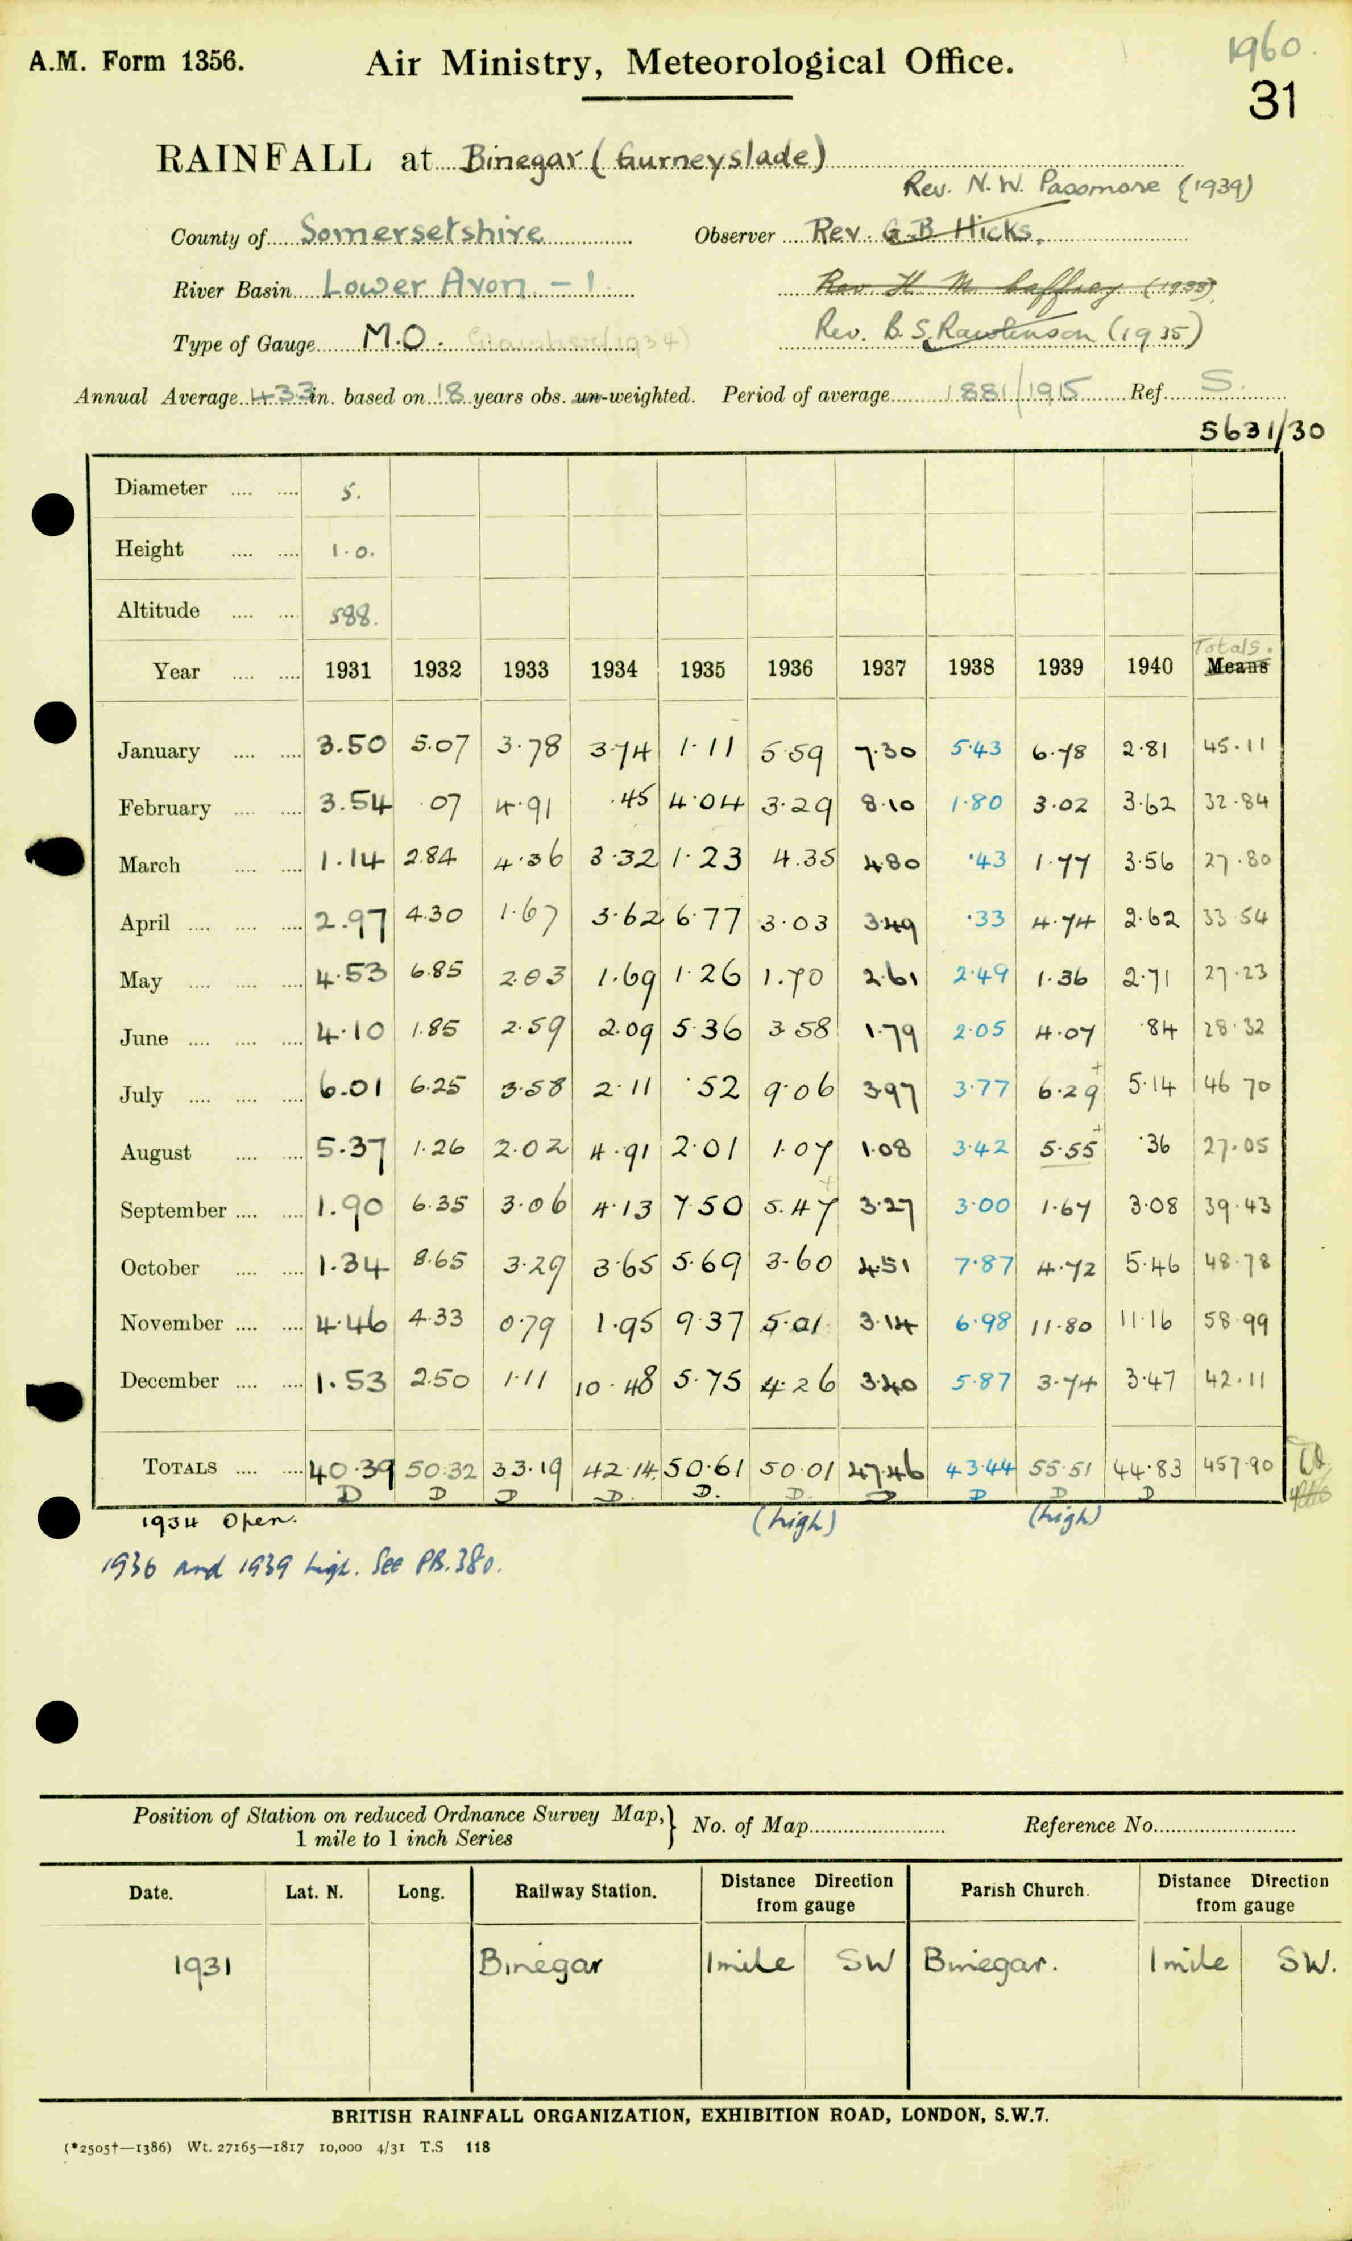 A.M. Form 1356.
Air Ministry, Meteorological Office.
1960.
31
RAINFALL at Binegar (Gurneyslade)
Rev. N. W. Passmore (1939)
County of Somersetshire Observer Rev. G. B. Hicks.
River Basin Lower Avon - 1 Rev. H. M. (1933)
Type of Gauge M.O. (1934) Rev. B. S. Rawlinson (1935)
Annual Average 43.3 in. based on 18 years obs. un-weighted. Period of average 1881/1915 Ref. S.
5631/30
Diameter 5.
Height 1.0.
Altitude 588.
Totals.
Year 1931 1932 1933 1934 1935 1936 1937 1938 1939 1940 Means
January 3.50 5.07 3.78 3.74 1.11 5.59 7.30 5.43 6.78 2.81 45.11
February 3.54 .07 4.91 .45 4.04 3.29 8.10 1.80 3.02 3.62 32.84
March 1.14 2.84 4.36 3.32 1.23 4.35 4.80 .43 1.77 3.56 27.80
April 2.97 4.30 1.67 3.62 6.77 3.03 3.49 .33 4.74 2.62 33.54
May 4.53 6.85 2.03 1.69 1.26 1.70 2.61 2.49 1.36 2.71 27.23
June 4.10 1.85 2.59 2.09 5.36 3.58 1.79 2.05 4.07 .84 28.32
July 6.01 6.25 3.58 2.11 .52 9.06 3.97 3.77 6.29 5.14 46.70
August 5.37 1.26 2.02 4.91 2.01 1.07 1.08 3.42 5.55 .36 27.05
September 1.90 6.35 3.06 4.13 7.50 5.47 3.27 3.00 1.67 3.08 39.43
October 1.34 8.65 3.29 3.65 5.69 3.60 4.51 7.87 4.72 5.46 48.78
November 4.46 4.33 0.79 1.95 9.37 5.01 3.14 6.98 11.80 11.16 58.99
December 1.53 2.50 1.11 10.48 5.75 4.26 3.40 5.87 3.74 3.47 42.11
TOTALS 40.39 50.32 33.19 42.14 50.61 50.01 47.46 43.44 55.51 44.83 457.90
D D D D. D. D. D D D D
1934 Open. (high) (high)
1936 and 1939 high. See PB.380.
Position of Station on reduced Ordnance Survey Map, } No. of Map Reference No.
1 mile to 1 inch Series
Date. Lat. N. Long. Railway Station. Distance from gauge Direction Parish Church. Distance from gauge Direction
1931 Binegar 1 mile SW Binegar. 1 mile SW.
BRITISH RAINFALL ORGANIZATION, EXHIBITION ROAD, LONDON, S.W.7.
(*2505†—1386) Wt. 27165—1817 10,000 4/31 T.S 118